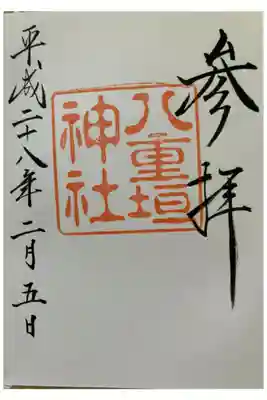 参拝
八重垣
神社
平成二十八年二月五日